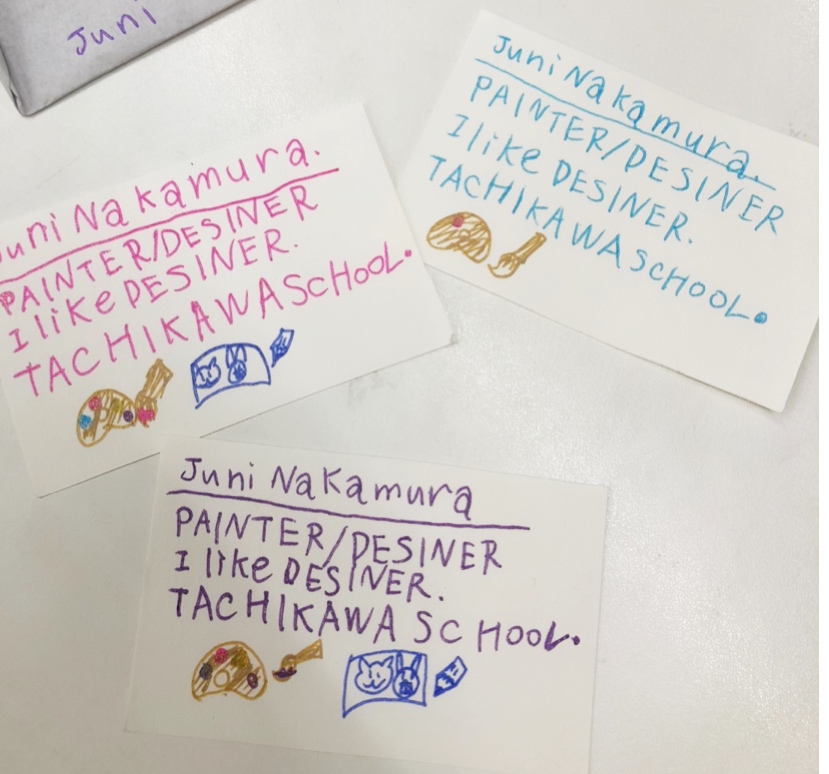 Juni
Juni Nakamura.
PAINTER/DESINER
I like DESINER.
TACHIKAWA SCHOOL.
Juni Nakamura.
PAINTER/DESINER
I like DESINER.
TACHIKAWA SCHOOL.
Juni Nakamura
PAINTER/DESINER
I like DESINER.
TACHIKAWA SCHOOL.